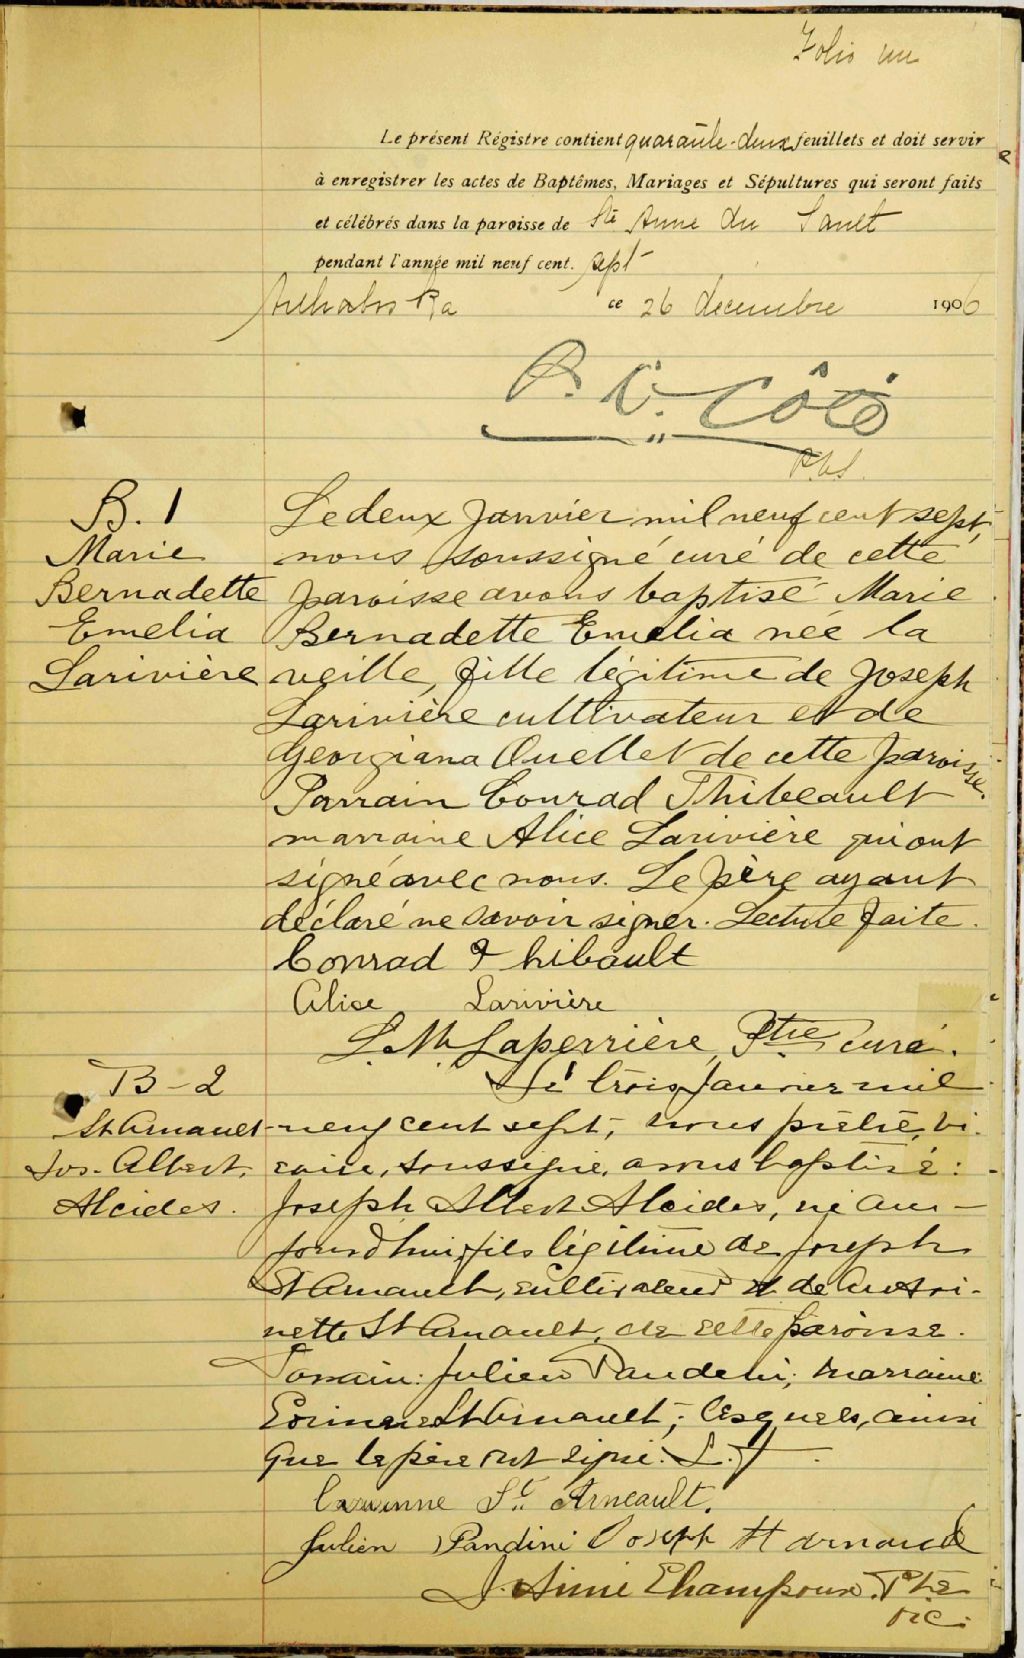 Folio un
Le présent Régistre contient quarante-deux feuillets et doit servir
à enregistrer les actes de Baptêmes, Mariages et Sépultures qui seront faits
et célébrés dans la paroisse de Ste Anne du Sault
pendant l'année mil neuf cent. sept
Arthabaska ce 26 decembre 1906
P. Côté
P.C.S.
B. 1
Marie
Bernadette
Emelia
Larivière
Le deux Janvier mil neuf cent sept,
nous soussigné curé de cette
paroisse avons baptisé Marie
Bernadette Emelia née la
veille, fille légitime de Joseph
Larivière cultivateur et de
Georgiana Ouellet de cette paroisse.
Parrain Conrad Thibeault
marraine Alice Larivière qui ont
signé avec nous. Le père ayant
déclaré ne savoir signer. Lecture faite.
Conrad Thibault
Alice Larivière
L. M. Laperrière, Ptre curé.
B-2
St Arnault
Jos. Albert
Alcides.
Le trois Janvier mil
neuf cent sept, nous prêtre, vi-
caire, soussigné, avons baptisé:
Joseph Albert Alcides, né au-
jourd'hui, fils légitime de Joseph
St Arnault, cultivateur et de Antoi-
nette St Arnault, de cette paroisse.
Parrain: Julien Pandini; marraine
St Arnault; lesquels, ainsi
que le père ont signé. L. f.
St. Arneault.
Julien Pandini Joseph St arnault
J. Aimé Champoux. Ptre
vic.